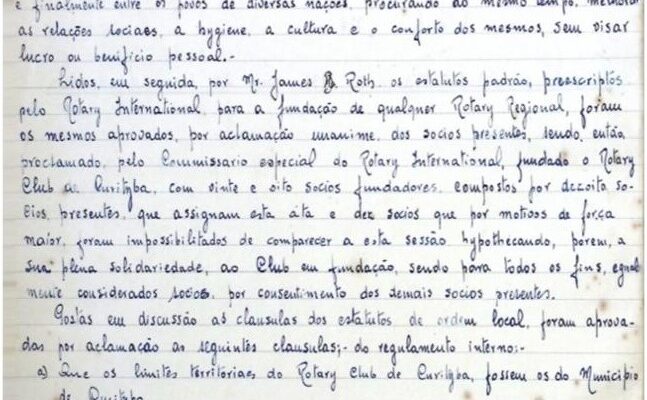 e finalmente entre os povos de diversas nações, procurando ao mesmo tempo, melhorar
as relações sociaes, a hygiene, a cultura e o conforto dos mesmos, sem visar
lucro ou beneficio pessoal.-
Lidos, em seguida, por Mr. James Roth, os estatutos padrão, preescriptos
pelo Rotary International, para a fundação de qualquer Rotary Regional, foram
os mesmos aprovados, por aclamação unanime, dos socios presentes, sendo, então,
proclamado, pelo Commissario especial do Rotary International, fundado o Rotary
Club de Curityba, com vinte e oito socios fundadores, compostos por dezoito so-
cios, presentes, que assignam esta áta e dez socios que por motivos de força
maior, foram impossibilitados de comparecer a esta sessão, hypothecando, porem, a
sua plena solidariedade, ao Club em fundação, sendo para todos os fins, egual
mente considerados socios, por consentimento dos demais socios presentes.
Postas em discussão as clausulas dos estatutos de ordem local, foram aprova-
das por aclamação as seguintes clausulas;- do regulamento interno:-
a) Que os limites territoriaes do Rotary Club de Curityba, fossem os do Municipio
de Curityba